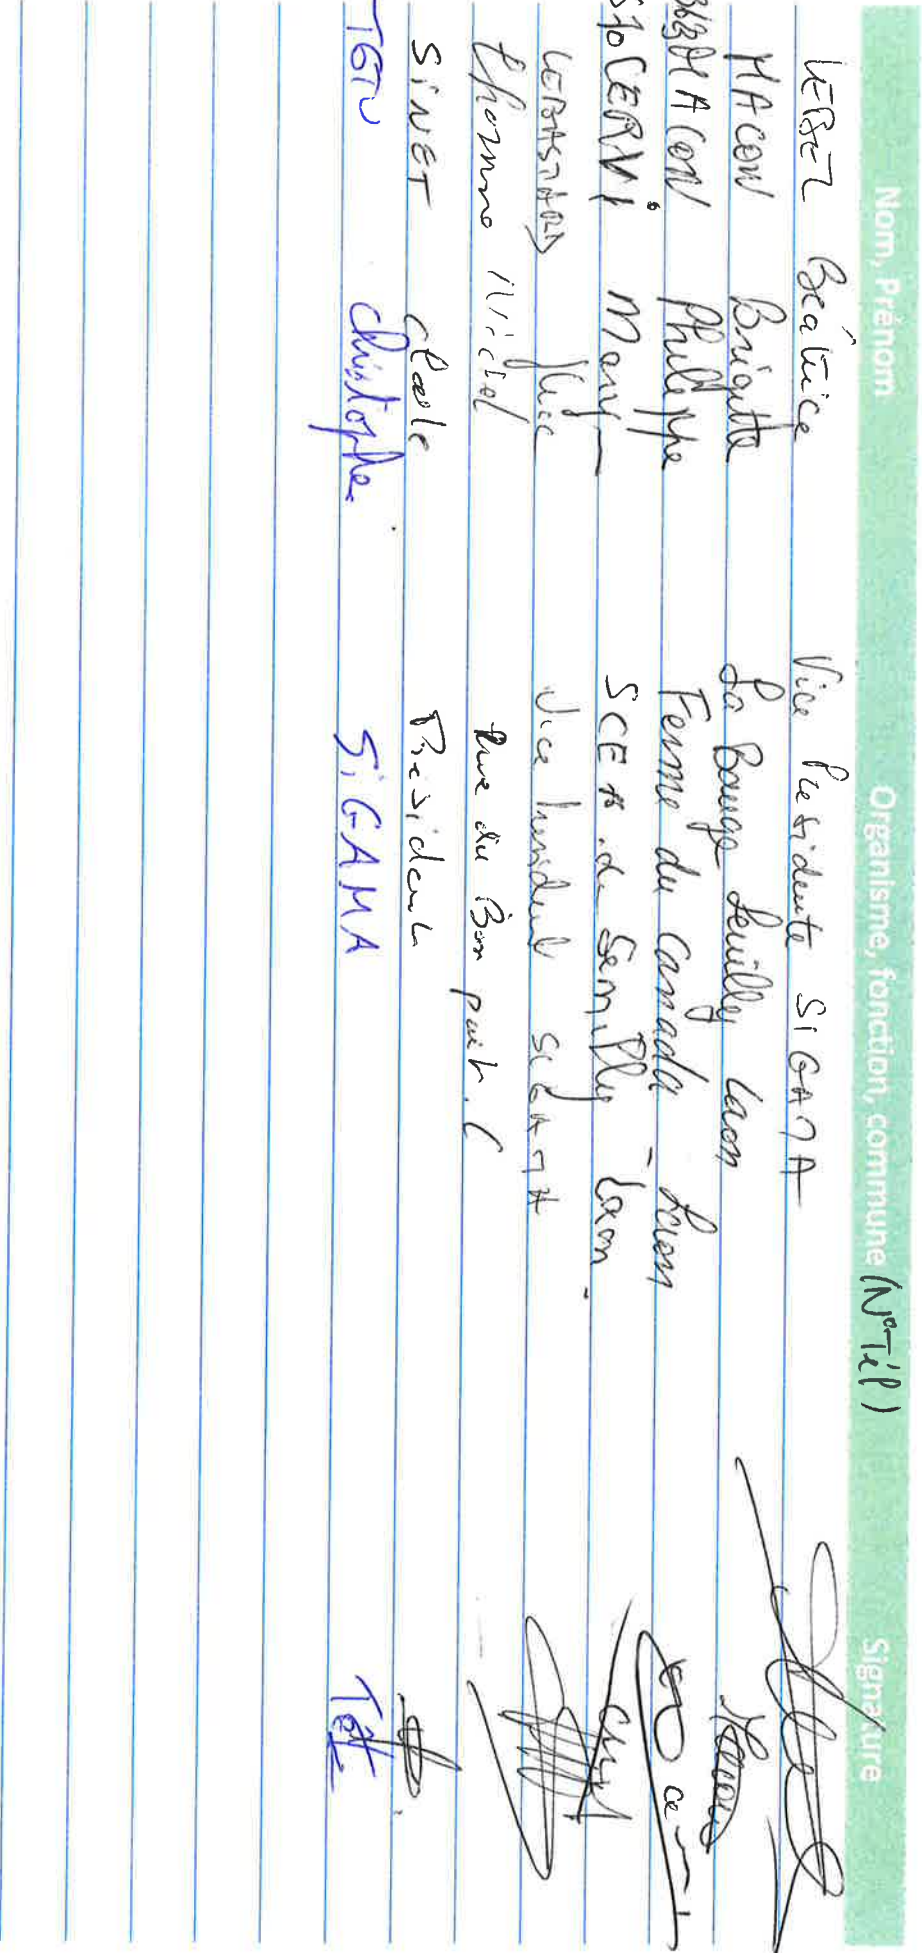 Nom, Prénom Organisme, fonction, commune (N° Tél) Signature
LEBEL Béatrice Vice Présidente SIGAMA
MACON Brigitte La Bouge Leuilly Laon
MACON Philippe Ferme du Canada - Laon
CERVI Many SCEA de Semilly Laon
LEBASTARD Vice Président SIGAMA
Thomme Michel Rue du Bon puits
SINET Président
TETU Christophe SIGAMA